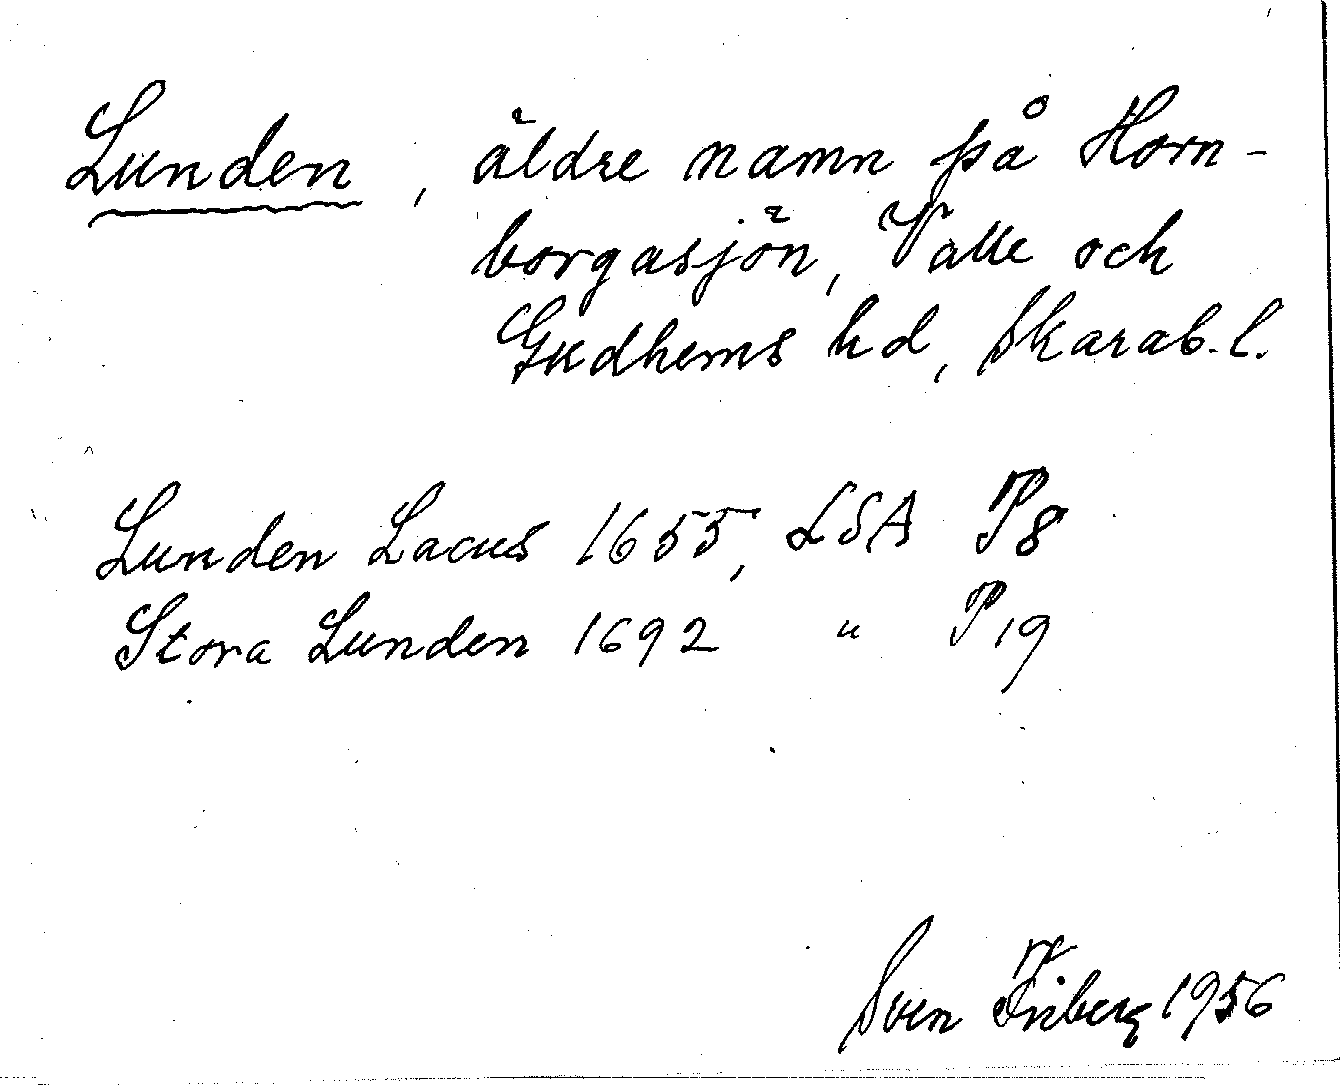 Lunden, äldre namn på Horn-
borgasjön, Valle och
Gudhems hd, Skarab. l.
Lunden Lacus 1655, LSA P8
Stora Lunden 1692 " P19
Sven Friberg 1956